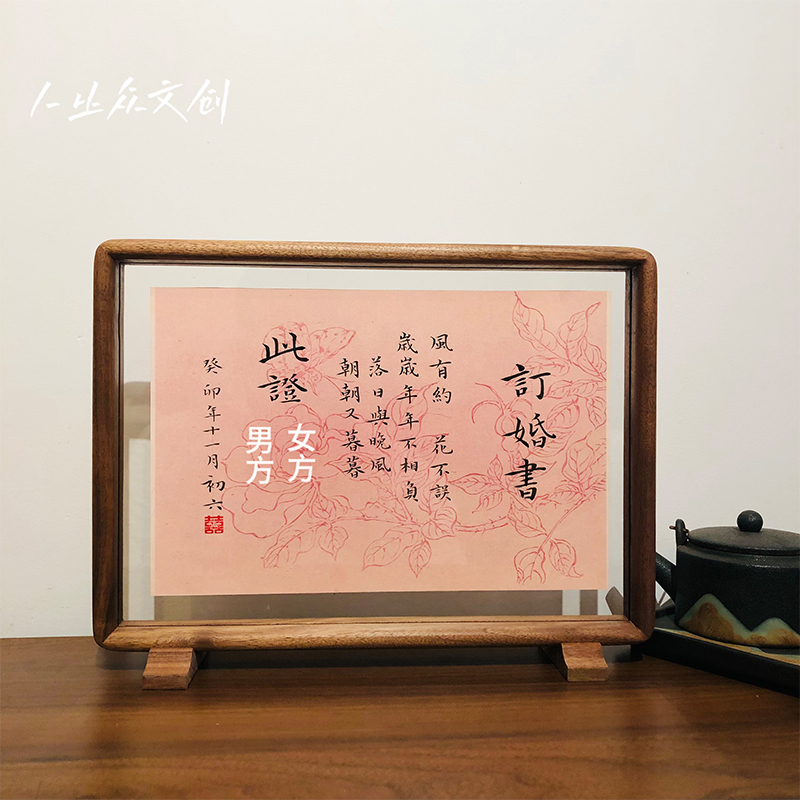 众文创
訂婚書
風有約 花不誤
歲歲年年不相負
落日與晚風
朝朝又暮暮
此證
女方
男方
癸卯年十一月初六
囍